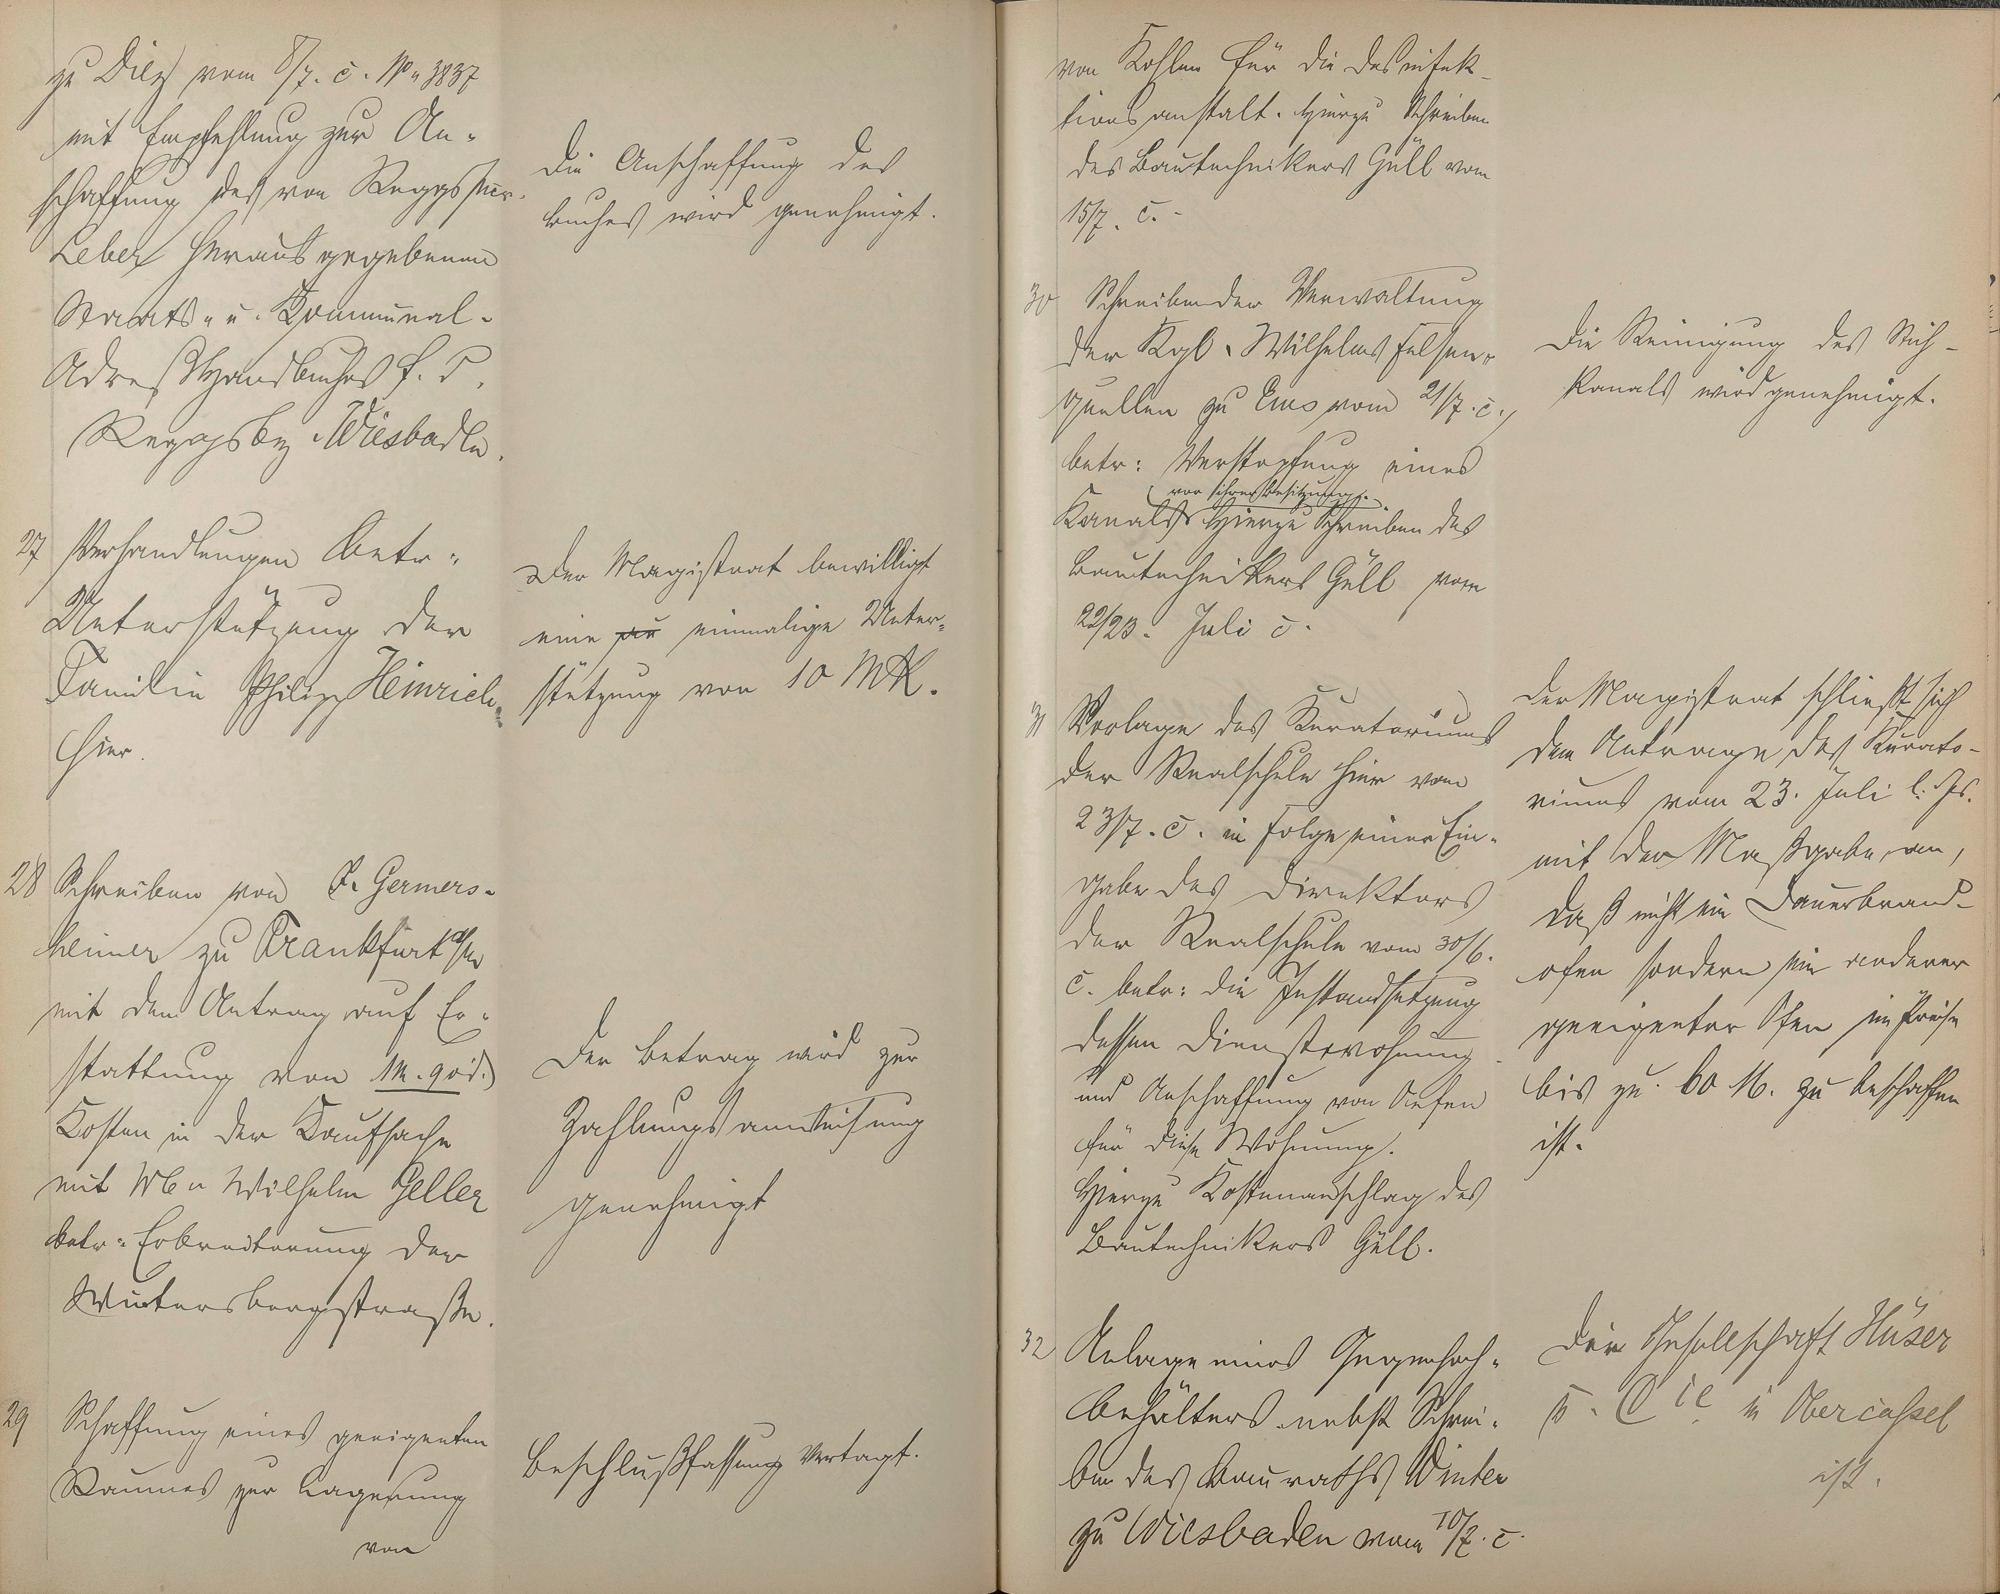 zu Diez vom 8/7. c. No 3837
mit Empfehlung zur An-
schaffung des von Reggs
Leber herausgegebenen
Staats- u. Kommunal-
Adreß Handbuches f. d.
Reggsbez. Wiesbaden.
Die Anschaffung des
Buches wird genehmigt.
27 Verhandlungen betr.
Unterstützung der
Familie Philipp Heinrich
hier.
Der Magistrat bewilligt
eine einmalige Unter-
stützung von 10 Mk.
28 Schreiben von Germers-
heimer zu Frankfurt a/M
mit dem Antrag auf Er-
stattung von
Kosten in der Kaufsache
mit Wilhelm Geller
betr. Erbreiterung der
Wintersbergstraße.
Der Betrag wird zur
Zahlungsanweisung
genehmigt
29 Schaffung eines geeigenten
Raumes zur Lagerung
von
Beschlußfassung vertagt.
von Kohlen für die Desinfek-
tionsanstalt. Hierzu Schreiben
des Bautechnikers Güll vom
15/7. c.
30 Schreiben der Verwaltung
der Kgl. Wilhelms Felsen-
quellen zu Ems vom 21/7. c.,
betr: Verstopfung eines
vor ihrer Besitzung.
Kanals Hierzu Schreiben des
Bautechnikers Güll vom
22/23. Juli c.
Die Reinigung des Stich-
kanals wird genehmigt.
31 Vorlage des Kuratoriums
der Realschule hier vom
23/7. c. in Folge einer Ein-
gabe des Direktors
der Realschule vom 30/6.
c. betr: die Instandsetzung
dessen Dienstwohnung
und Anschaffung von Oefen
für diese Wohnung.
Hierzu Kostenanschlag des
Bautechnikers Güll.
Der Magistrat schließt sich
dem Antrage des Kurato-
riums vom 23. Juli l. Js.
mit der Maßgabe an,
daß nicht ein Dauerbrand-
ofen sondern ein anderer
geeigneter Ofen im Preise
bis zu 60 M. zu beschaffen
ist.
32 Anlage eines Gegenhoch-
behälters nebst Schrei-
ben des Bauraths Winter
zu Wiesbaden vom 10/7. c.
Die Gesellschaft Hüser
u. Cie in Obercassel
ist.